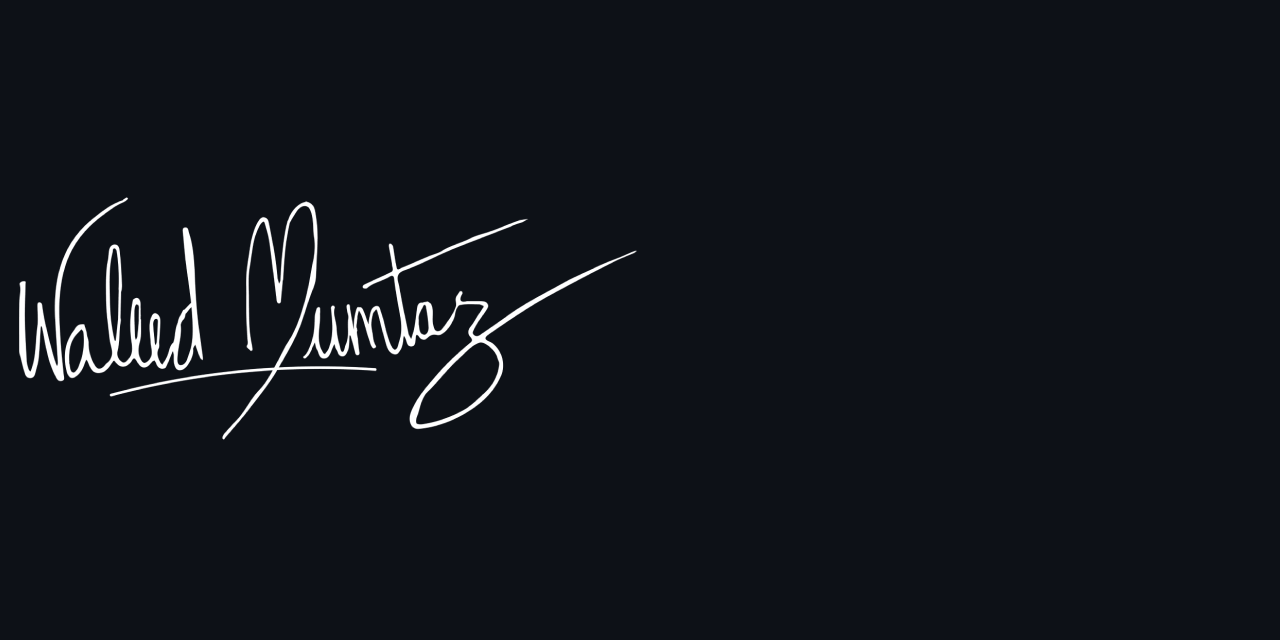 Waleed Mumtaz